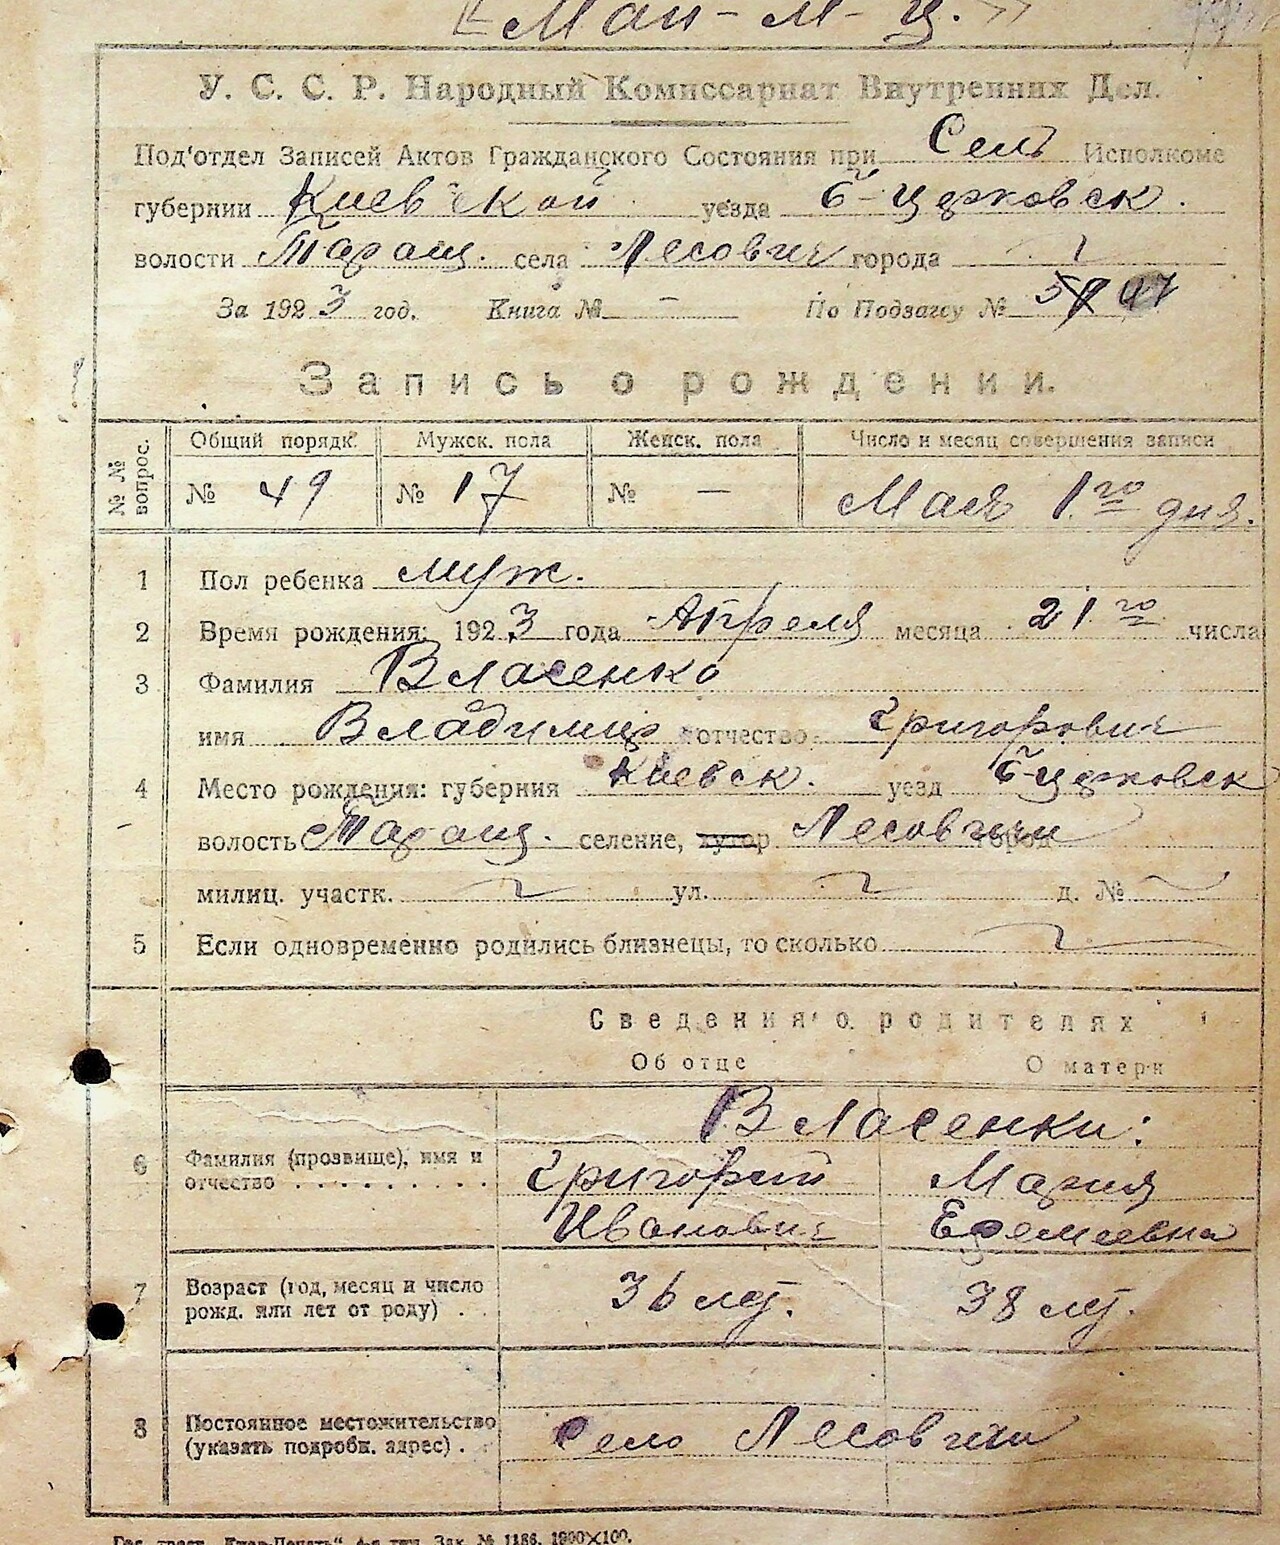 «Май-м-ц.»
У. С. С. Р. Народный Комиссариат Внутренних Дел.
Под'отдел Записей Актов Гражданского Состояния при Сель Исполкоме
губернии Киевской уезда Б-Церковск.
волости Таращ. села Лесович города
За 1923 год. Книга № — По Подзагсу № 47
Запись о рождении.
№ № вопрос. Общий порядк. Мужск. пола Женск. пола Число и месяц совершения записи
№ 49 № 17 № — Мая 1го дня.
1 Пол ребенка муж.
2 Время рождения: 1923 года Апреля месяца 21го числа
3 Фамилия Власенко
имя Владимир отчество Григорович
4 Место рождения: губерния Киевск. уезд Б-Церковск
волость Таращ. селение, хутор Лесовичи город
милиц. участк. ул. д. №
5 Если одновременно родились близнецы, то сколько
Сведения о родителях
Об отце О матери
Власенки:
6 Фамилия (прозвище), имя и Григорий Мария
отчество . . . . . . . . . Иванович Еремеевна
7 Возраст (год, месяц и число 36 лет. 38 лет.
рожд. или лет от роду) . .
8 Постоянное местожительство Село Лесовичи
(указать подробн. адрес) . .
Зак. № 1186. 1900×100.